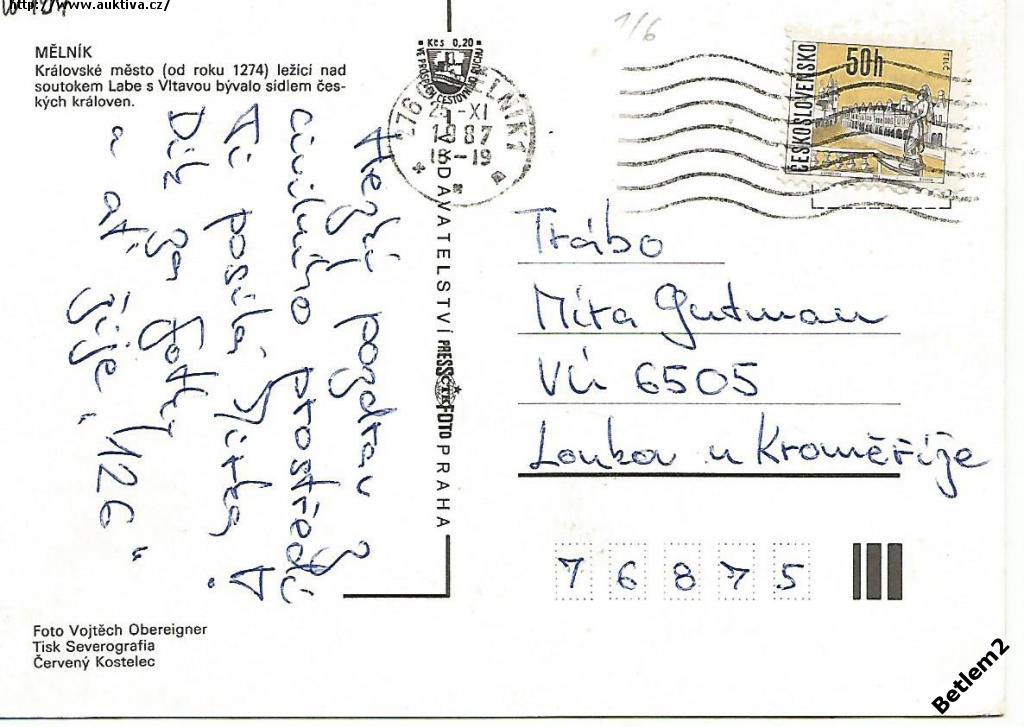 http://www.auktiva.cz/
MĚLNÍK
Královské město (od roku 1274) ležící nad
soutokem Labe s Vltavou bývalo sídlem čes-
kých královen.
Hezký pozdrav z
civilního prostředí
Ti posílá Jirka A
Dík za fotky
a ať žije „126“
Foto Vojtěch Obereigner
Tisk Severografia
Červený Kostelec
VYDAVATELSTVÍ PRESSFOTO PRAHA
Kčs 0,20
276 MĚLNÍK 1
25-XI
1987
18-19
1/6
ČESKOSLOVENSKO
50h
TELČ
Trábo
Míra Gutman
VÚ 6505
Loukov u Kroměříže
76875
Betlem2